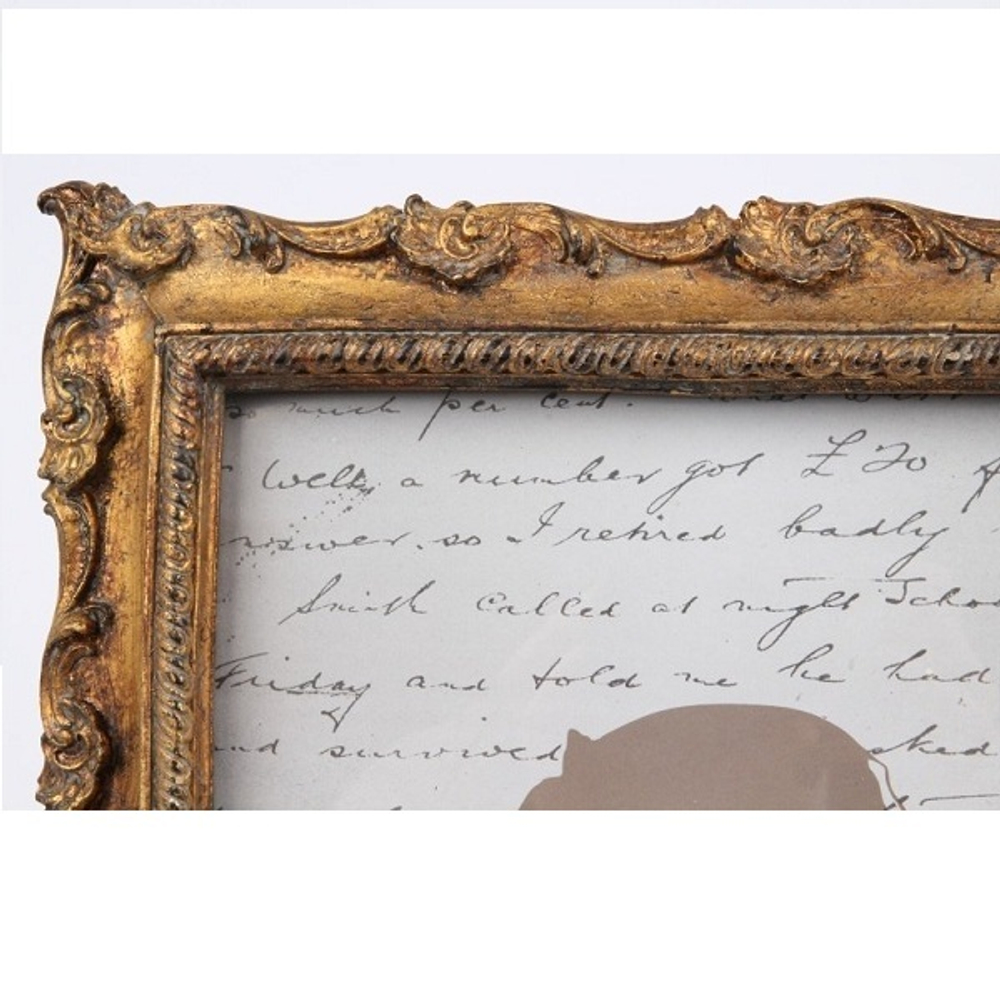 so much per cent.
Well, a number got £20
nswer, so I retired badly
Smith called at night Schoo
Friday and told me he had
nd survived sked